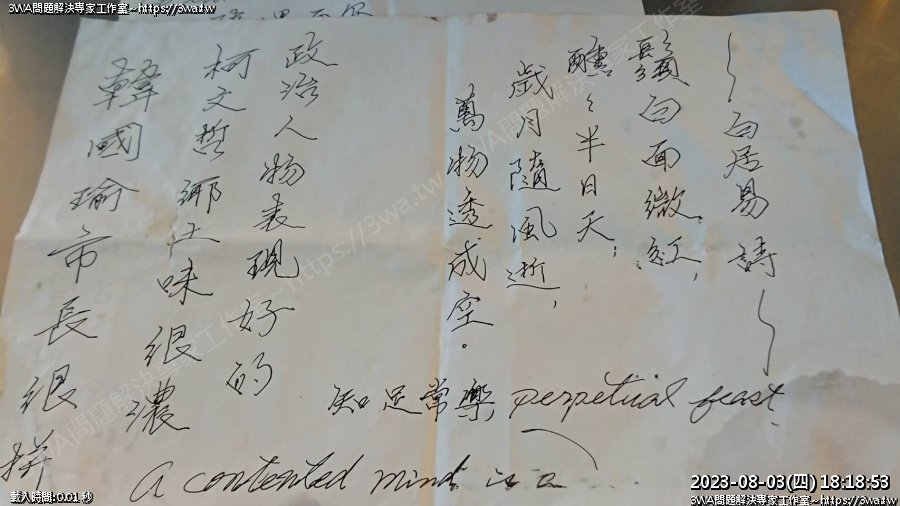 3WA問題解決專家工作室~https://3wa.tw
3WA問題解決專家工作室~https://3wa.tw
~白居易詩~
鬚白面微紅,
醺々半日天,
歲月隨風逝,
萬物透成空。
政治人物表現好的
柯文哲鄉土味很濃
韓國瑜市長很拼
知足常樂 perpetual feast.
A contented mind is a
載入時間:0.01 秒
2023-08-03(四) 18:18:53
3WA問題解決專家工作室~https://3wa.tw